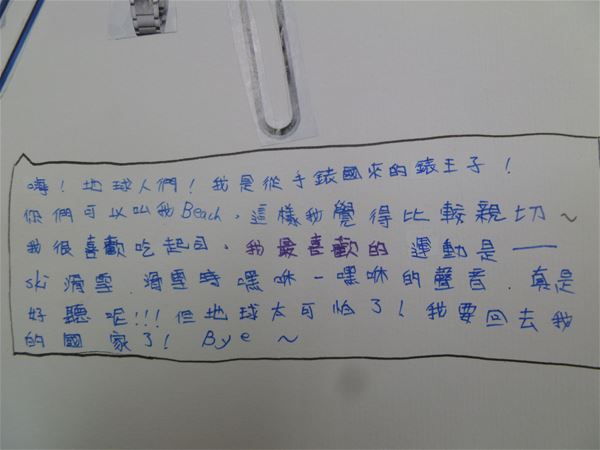 嗨！地球人們！我是從手錶國來的錶王子！
你們可以叫我Beach，這樣我覺得比較親切～
我很喜歡吃起司，我最喜歡的 運動是——
ski 滑雪．滑雪時嘿咻－嘿咻的聲音．真是
好聽呢!!! 但地球太可怕了！我要回去我
的國家了！ Bye ～